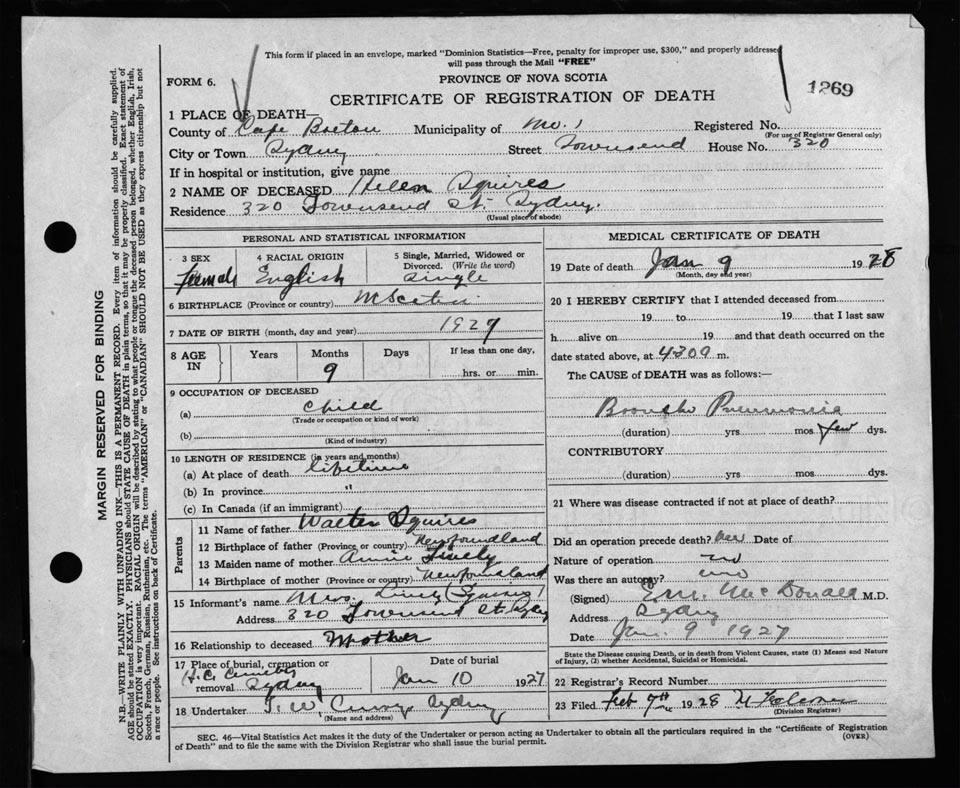 This form if placed in an envelope, marked "Dominion Statistics—Free, penalty for improper use, $300," and properly addressed
will pass through the Mail "FREE"
FORM 6.
PROVINCE OF NOVA SCOTIA
1269
CERTIFICATE OF REGISTRATION OF DEATH
1 PLACE OF DEATH—
County of Cape Breton Municipality of No. 1 Registered No.
(For use of Registrar General only)
City or Town Sydney Street Townsend House No. 320
If in hospital or institution, give name
2 NAME OF DECEASED Helen Squires
Residence 320 Townsend St. Sydney.
(Usual place of abode)
PERSONAL AND STATISTICAL INFORMATION
3 SEX 4 RACIAL ORIGIN 5 Single, Married, Widowed or Divorced. (Write the word)
Female English Single
6 BIRTHPLACE (Province or country) N Scotia
7 DATE OF BIRTH (month, day and year) 1927
8 AGE IN Years Months Days If less than one day,
9 hrs. or min.
9 OCCUPATION OF DECEASED
(a) Child
(Trade or occupation or kind of work)
(b)
(Kind of industry)
10 LENGTH OF RESIDENCE (in years and months)
(a) At place of death lifetime
(b) In province "
(c) In Canada (if an immigrant)
Parents
11 Name of father Walter Squires
12 Birthplace of father (Province or country) Newfoundland
13 Maiden name of mother Annie Lively
14 Birthplace of mother (Province or country) Newfoundland
15 Informant's name Mrs. (Squires)
Address 320 Townsend St. Sydney
16 Relationship to deceased Mother
17 Place of burial, cremation or removal Sydney
Date of burial
Jan 10 1927
18 Undertaker Sydney
(Name and address)
MEDICAL CERTIFICATE OF DEATH
19 Date of death Jan 9 1928
(Month, day and year)
20 I HEREBY CERTIFY that I attended deceased from
19 to 19 that I last saw
h alive on 19 and that death occurred on
date stated above, at m.
The CAUSE of DEATH was as follows:—
Broncho Pneumonia
(duration) yrs mos few dys.
CONTRIBUTORY
(duration) yrs mos dys.
21 Where was disease contracted if not at place of death?
Did an operation precede death? Date of
Nature of operation
Was there an autopsy?
(Signed) McDonald M.D.
Address Sydney
Date Jan. 9 1927
State the Disease causing Death, or in death from Violent Causes, state (1) Means and Nature
of Injury, (2) whether Accidental, Suicidal or Homicidal.
22 Registrar's Record Number
23 Filed Feb 7th 1928
(Division Registrar)
SEC. 46—Vital Statistics Act makes it the duty of the Undertaker or person acting as Undertaker to obtain all the particulars required in the "Certificate of Registration
of Death" and to file the same with the Division Registrar who shall issue the burial permit.
(OVER)
MARGIN RESERVED FOR BINDING
N.B.—WRITE PLAINLY WITH UNFADING INK—THIS IS A PERMANENT RECORD. Every item of information should be carefully supplied.
AGE should be stated EXACTLY. PHYSICIANS should STATE CAUSE OF DEATH in plain terms, so that it may be properly classified. Exact statement of
OCCUPATION is very important. RACIAL ORIGIN will be described by stating to what people or tongue the deceased person belonged, whether English, Irish,
Scotch, French, German, Russian, Ruthenian, etc. The terms "AMERICAN" or "CANADIAN" SHOULD NOT BE USED as they express citizenship but not
a race or people. See instructions on back of Certificate.